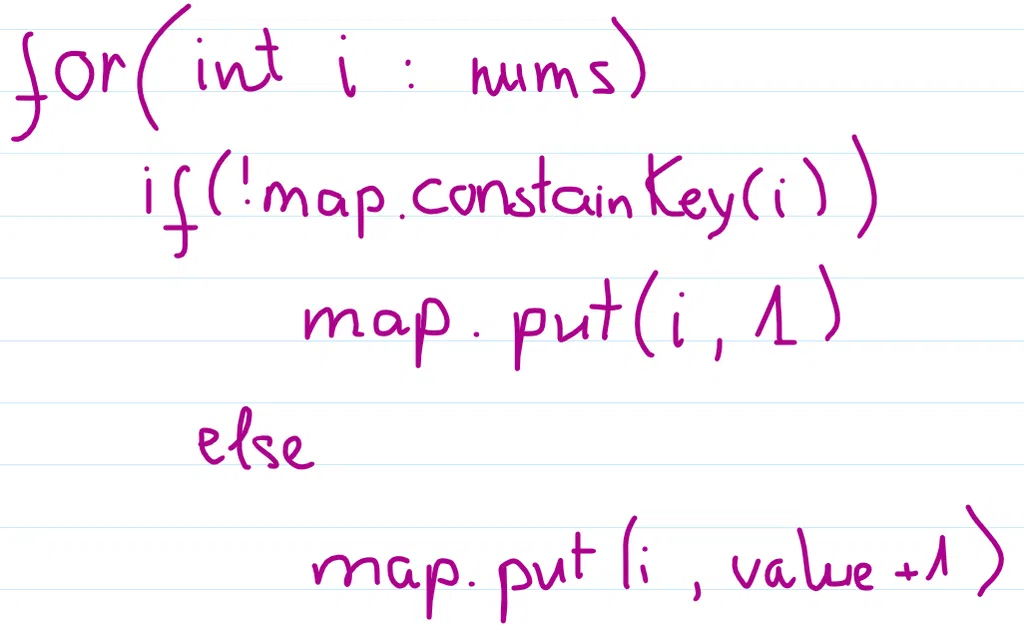 for(int i : nums)
if(!map.constainKey(i))
map.put(i, 1)
else
map.put(i, value+1)